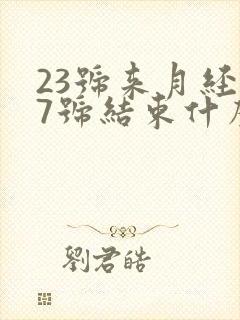 23號來月經
7號結束什
劉君皓